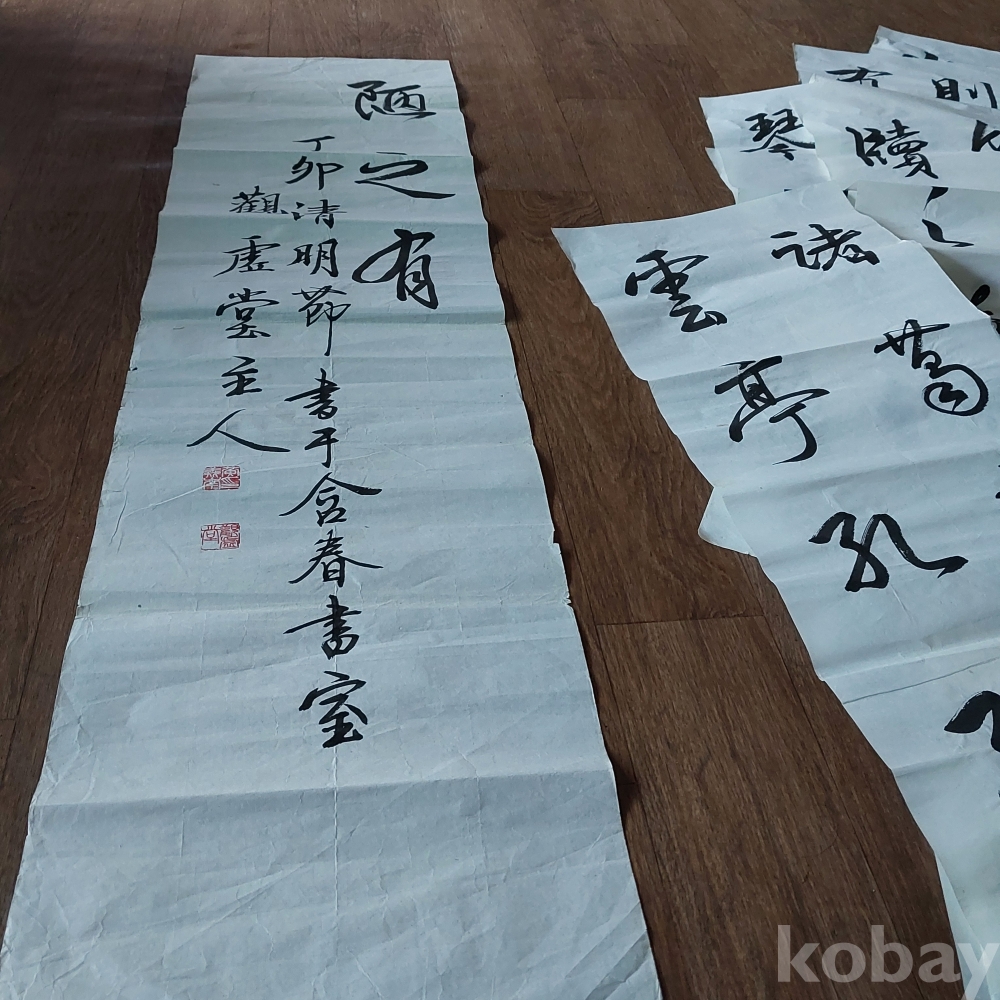 陋之有
丁卯清明節書于含春書室
觀虛堂主人
諸葛
雲亭孔
則
牘
琴
kobay